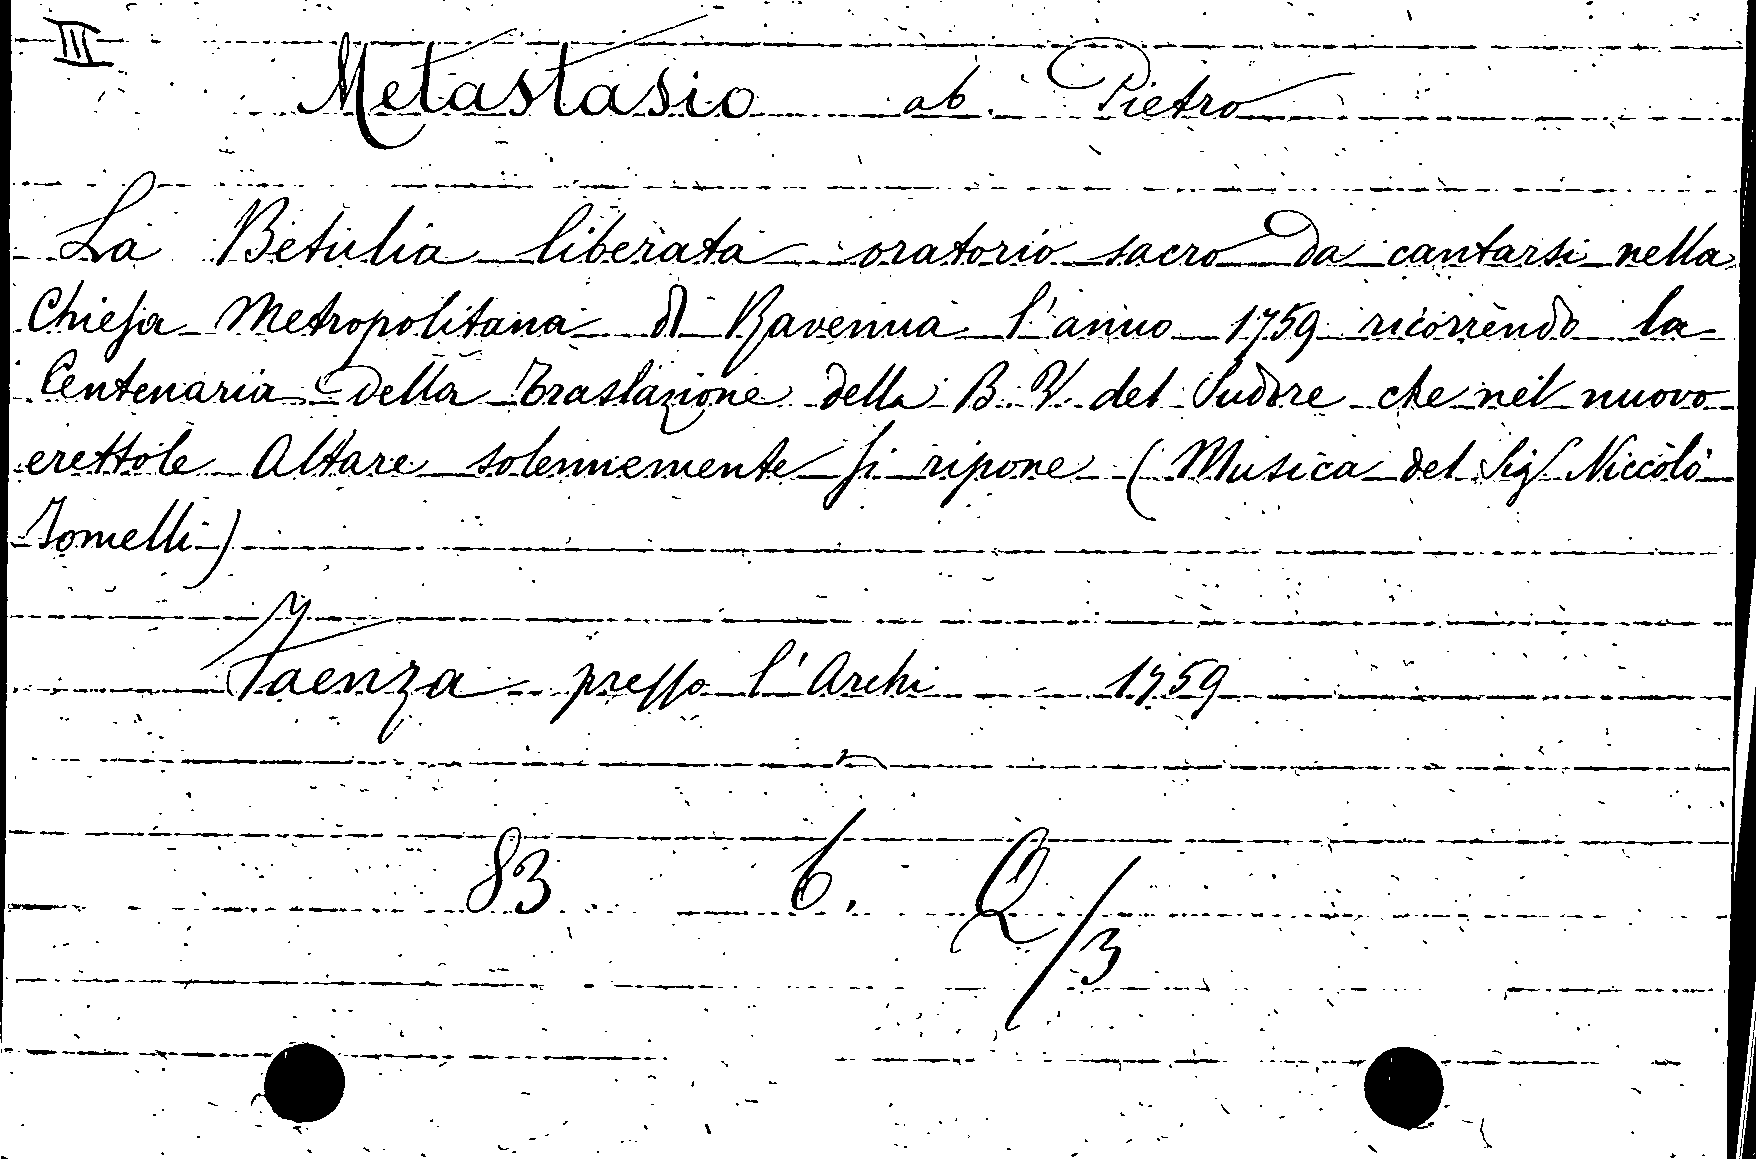 III
Metastasio ab. Pietro
La Betulia liberata oratorio sacro da cantarsi nella
Chiesa Metropolitana di Ravenna l'anno 1759 ricorrendo la
Centenaria della Traslazione della B. V. del Sudore che nel nuovo
erettole Altare solennemente si ripone (Musica del Sig Niccolò
Jomelli)
Faenza presso l'Archi 1759
83 b. Q/3